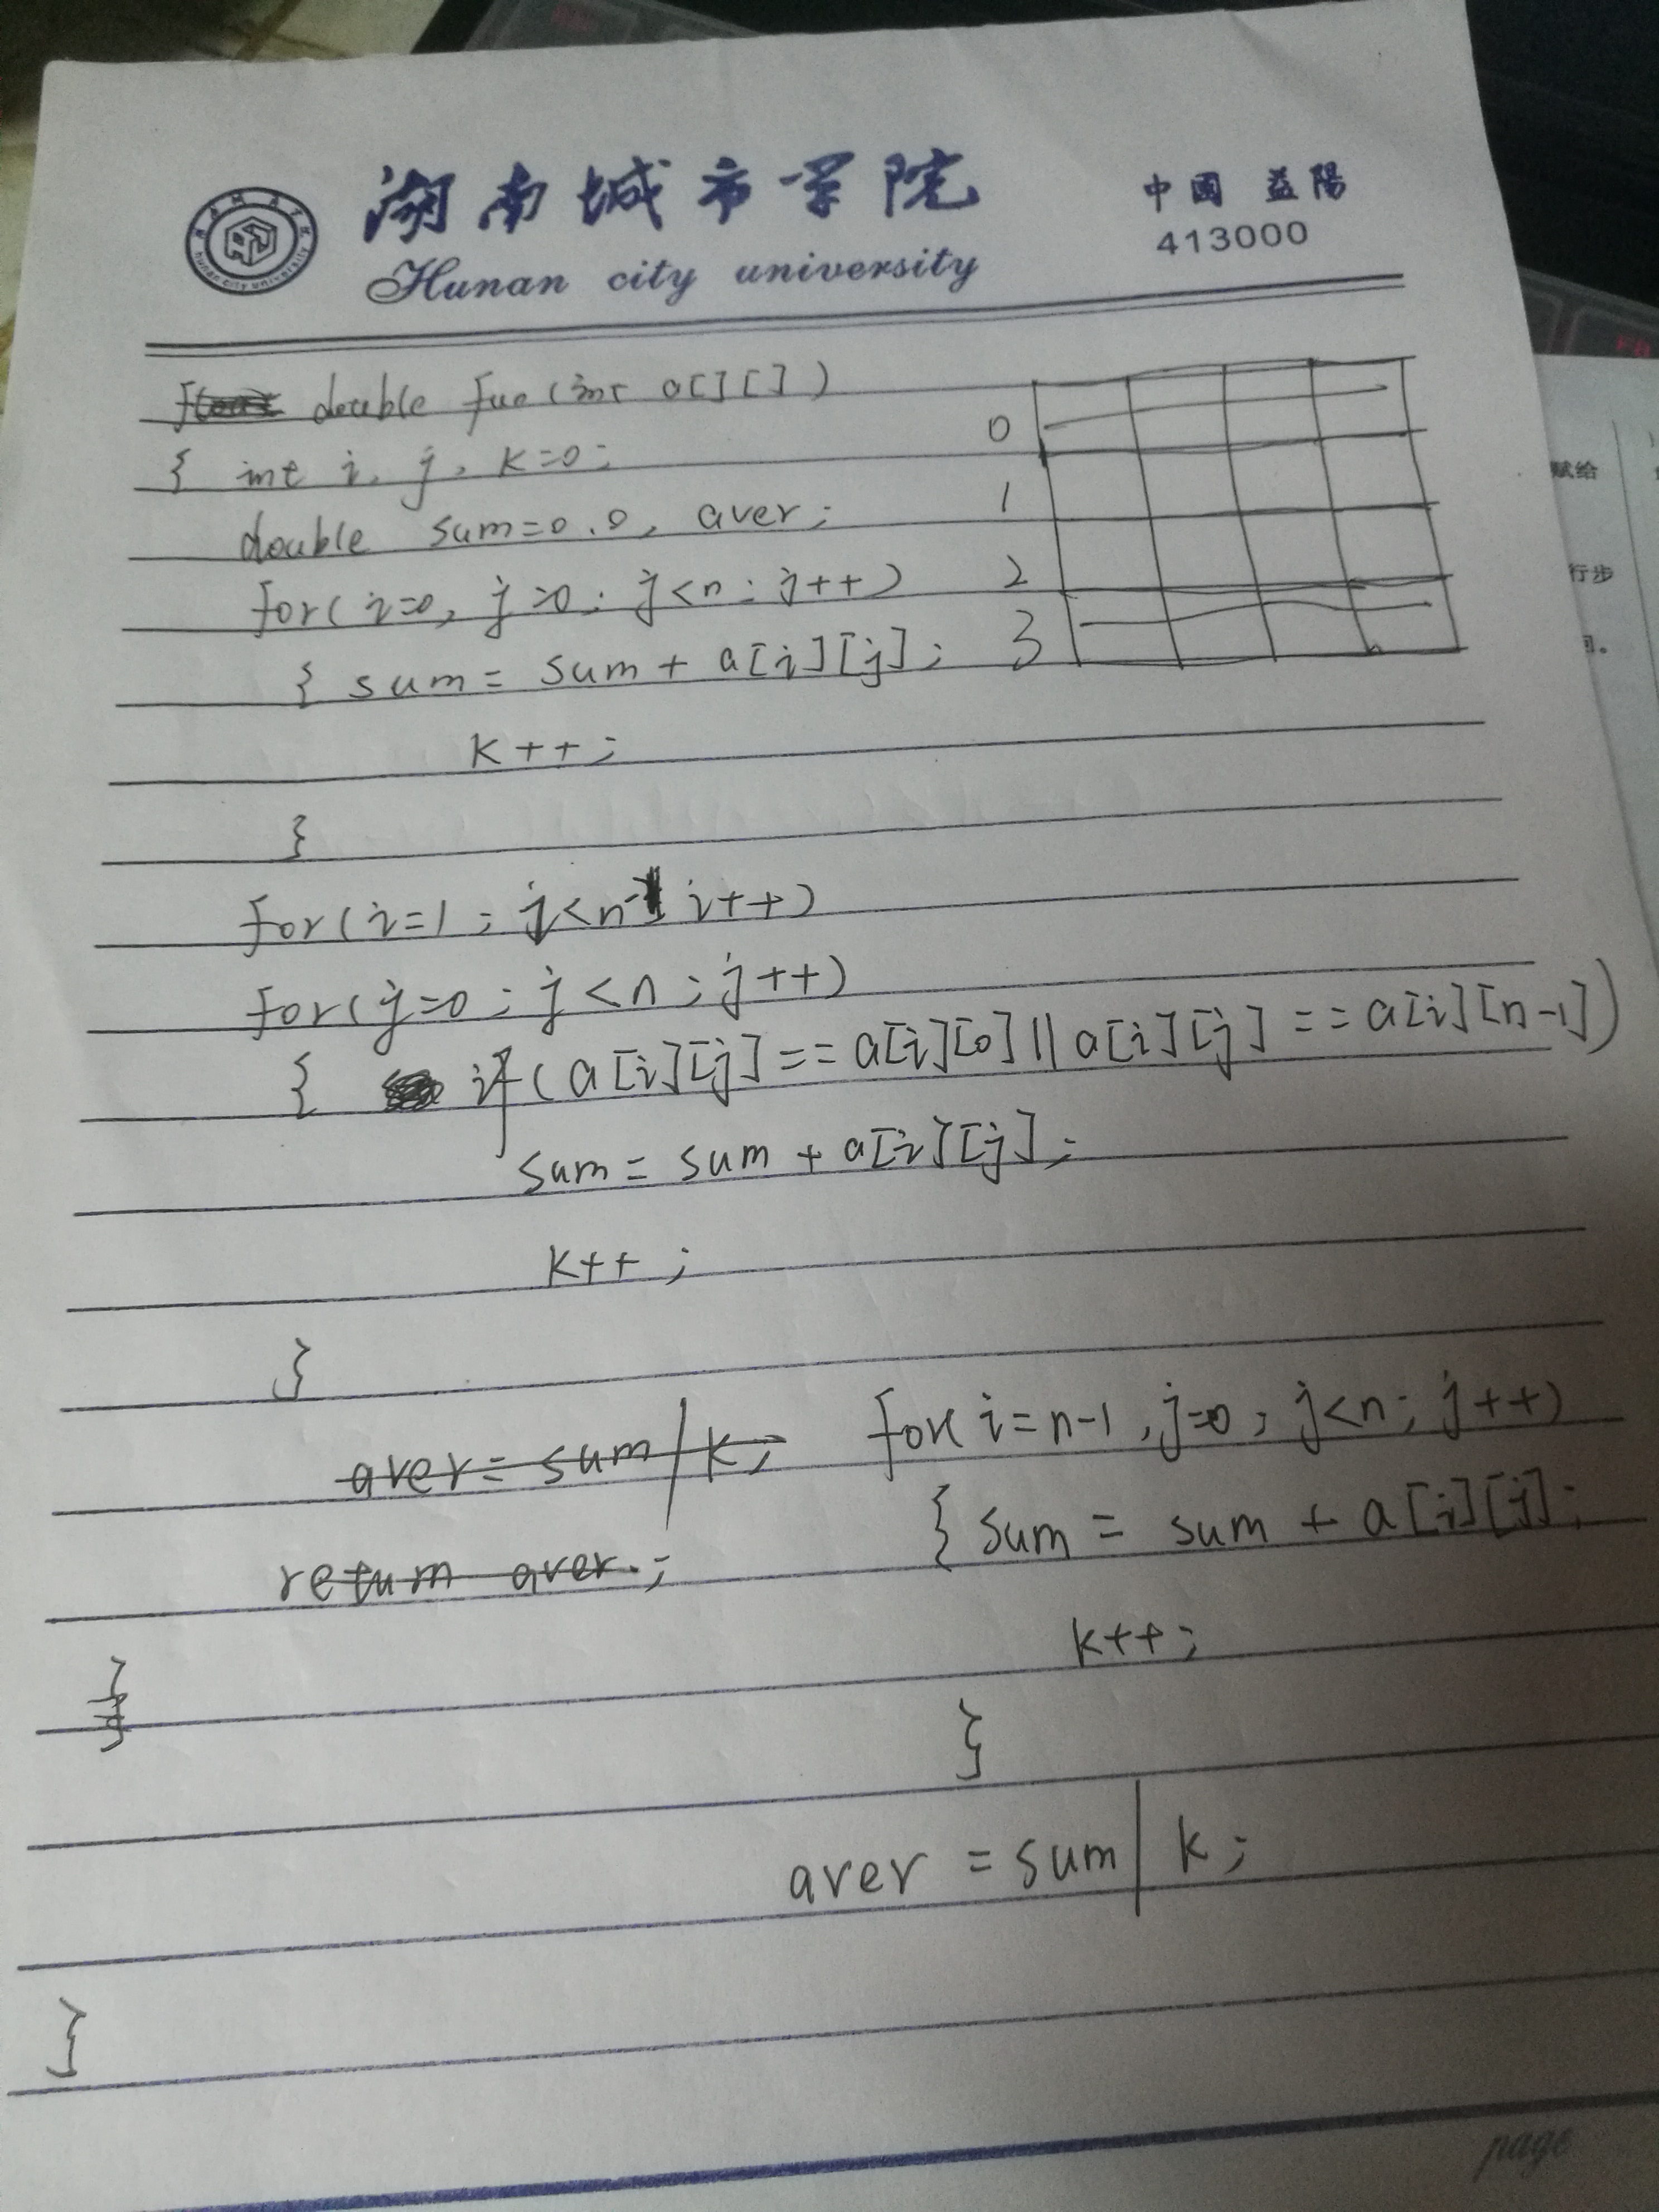 湖南城市学院
Hunan city university
中國 益陽
413000
double fun(int a[][])
{ int i, j, k=0;
double sum=0.0, aver;
for(i=0, j=0; j<n; j++)
{ sum = sum + a[i][j];
k++;
}
0
1
2
3
for(i=1; j<n-1 i++)
for(j=0; j<n; j++)
{ if(a[i][j]==a[i][0]||a[i][j]==a[i][n-1])
sum = sum + a[i][j];
k++;
}
aver=sum/k;
return aver;
}
for(i=n-1, j=0; j<n; j++)
{ sum = sum + a[i][j];
k++;
}
aver = sum/k;
}
page
赋给
行步